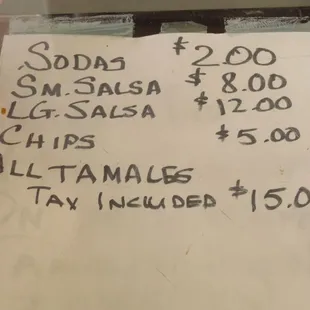 SODAS $2.00
SM. SALSA $8.00
LG. SALSA $12.00
CHIPS $5.00
LL TAMALES
TAX INCLUDED $15.0